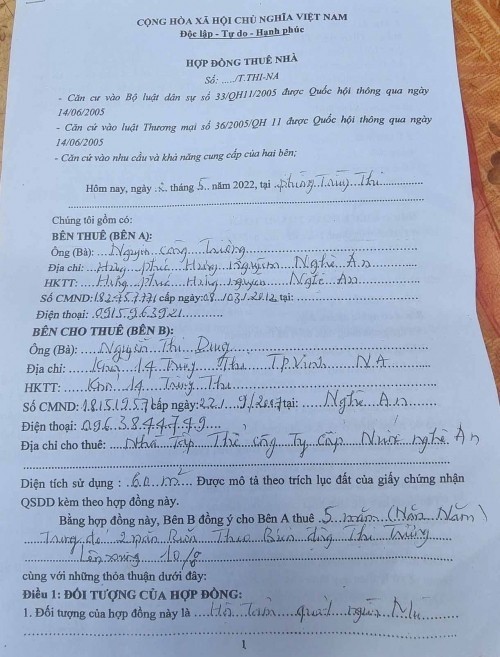 CỘNG HÒA XÃ HỘI CHỦ NGHĨA VIỆT NAM
Độc lập - Tự do - Hạnh phúc
HỢP ĐỒNG THUÊ NHÀ
Số: ...../T.THI-NA
- Căn cứ vào Bộ luật dân sự số 33/QH11/2005 được Quốc hội thông qua ngày
14/06/2005
- Căn cứ vào luật Thương mại số 36/2005/QH 11 được Quốc hội thông qua ngày
14/06/2005
- Căn cứ vào nhu cầu và khả năng cung cấp của hai bên;
Hôm nay, ngày .2. tháng 5.. năm 2022, tại phường Trung Thi
Chúng tôi gồm có:
BÊN THUÊ (BÊN A):
Ông (Bà): Nguyễn Công Trường
Địa chỉ: Hưng phúc Hưng nguyên Nghệ An
HKTT: Hưng phúc Hưng nguyên Nghệ An
Số CMND: cấp ngày: tại:
Điện thoại: 0915963921
BÊN CHO THUÊ (BÊN B):
Ông (Bà): Nguyễn Thị Dung
Địa chỉ: Khối 14 Trung Thi TP Vinh N A
HKTT: Khối 14 Trung Thi
Số CMND: 181519572 cấp ngày: tại: Nghệ An
Điện thoại: 0963844749
Địa chỉ cho thuê: Nhà Tập Thể công Ty Cấp Nước nghệ An
Diện tích sử dụng : 60 m2 Được mô tả theo trích lục đất của giấy chứng nhận
QSDD kèm theo hợp đồng này.
Bằng hợp đồng này, Bên B đồng ý cho Bên A thuê 5 năm (Năm Năm)
Trong đó 2 Thị Trường
10%
cùng với những thỏa thuận dưới đây:
Điều 1: ĐỐI TƯỢNG CỦA HỢP ĐỒNG:
1. Đối tượng của hợp đồng này là
1